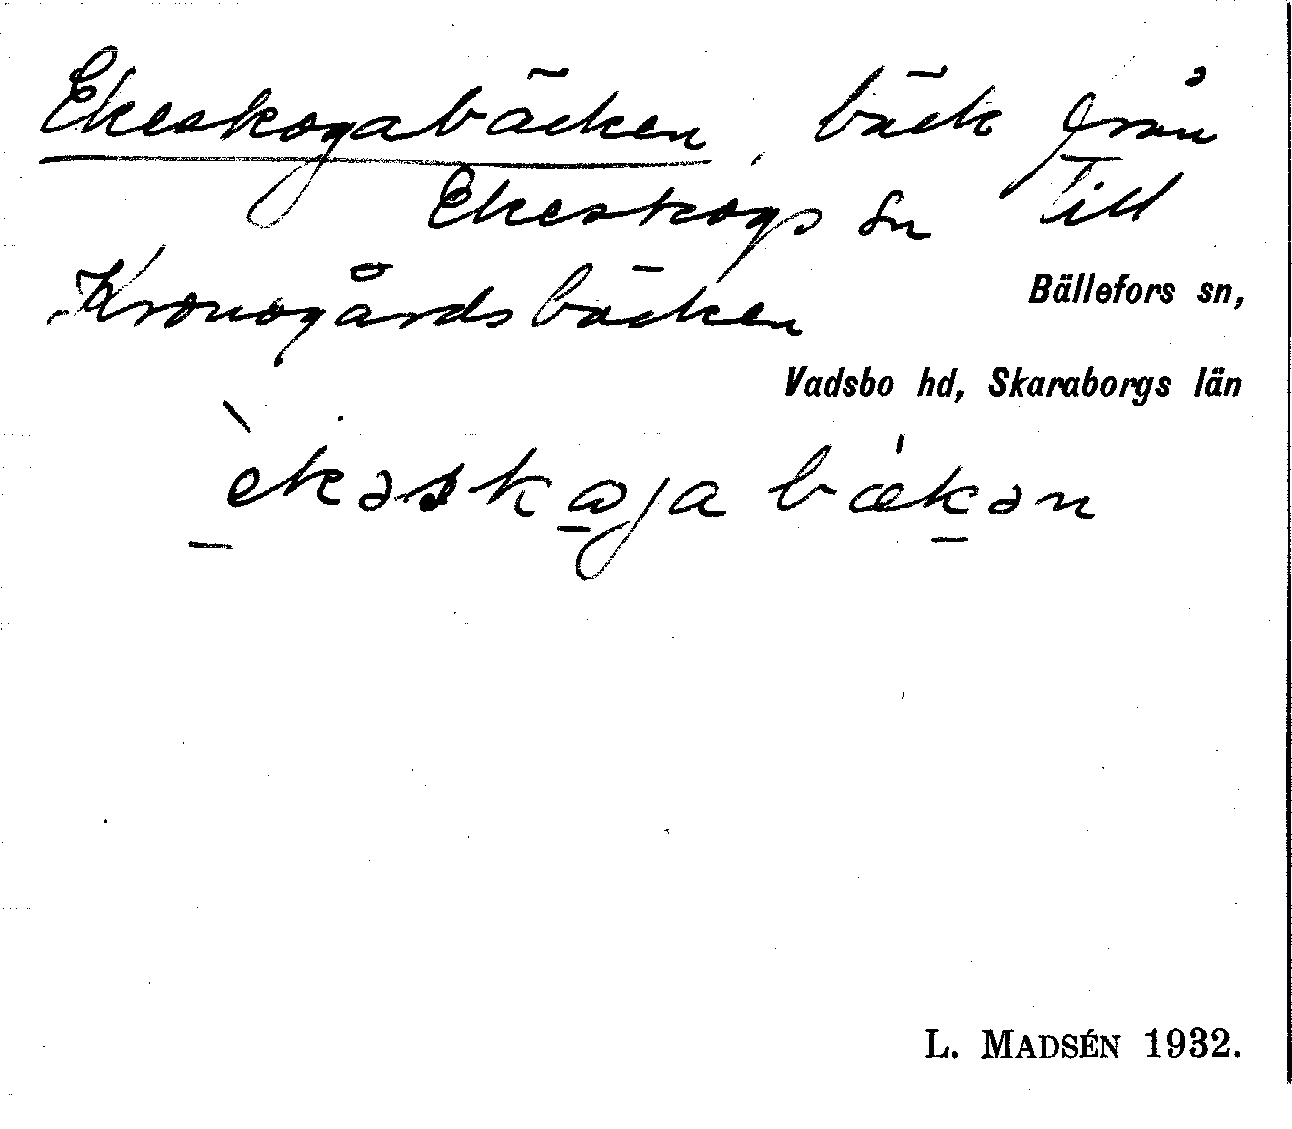 Ekeskogabäcken, bäck från
Ekeskogs sn till
Kronogårdsbäcken
Bällefors sn,
Vadsbo hd, Skaraborgs län
èkəsko̲ja bæ̍k̲ən
L. MADSÉN 1932.